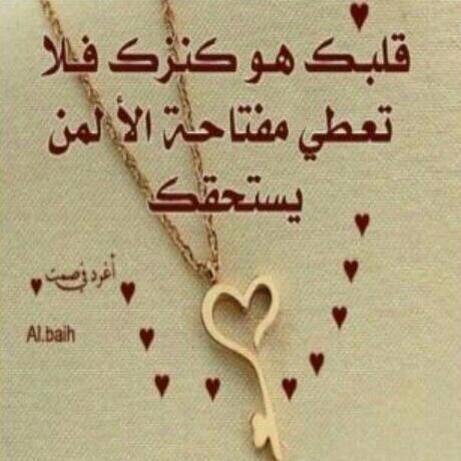 قلبك هو كنزك فلا
تعطي مفتاحة الأ لمن
يستحقك
أغرد في صمت
Al.baih